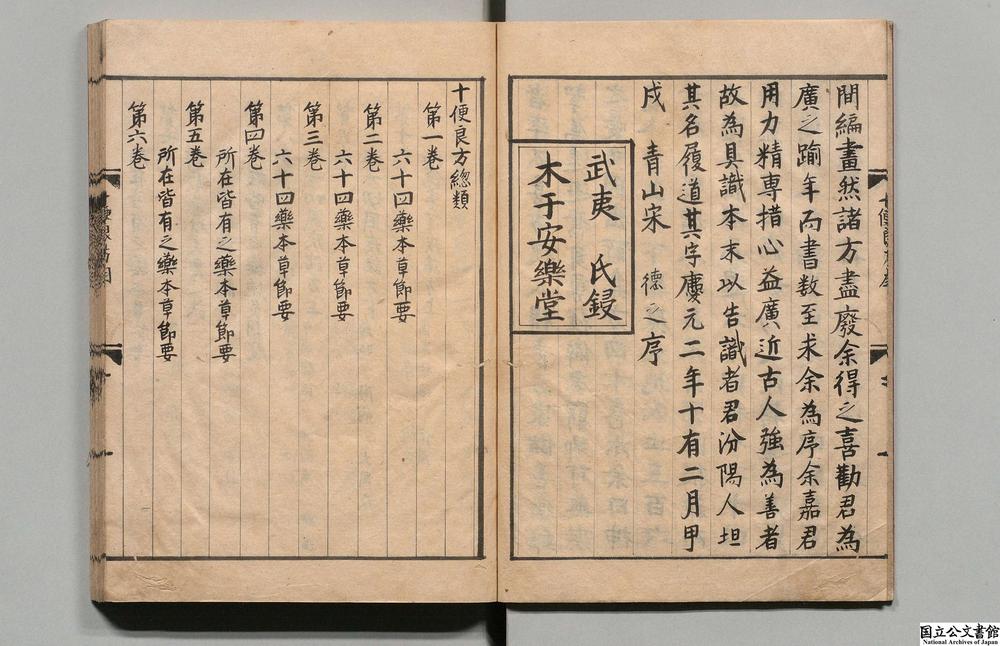 間編畫然諸方盡廢余得之喜勸君為
廣之踰年而書数至求余為序余嘉君
用力精専措心益廣近古人強為善者
故為具識本末以告識者君汾陽人坦
其名履道其字慶元二年十有二月甲
戌　青山宋　德之序
武夷　氏鋟
木于安樂堂
十便良方總類
第一卷
六十四藥本草節要
第二卷
六十四藥本草節要
第三卷
六十四藥本草節要
第四卷
所在皆有之藥本草節要
第五卷
所在皆有之藥本草節要
第六卷
国立公文書館
National Archives of Japan